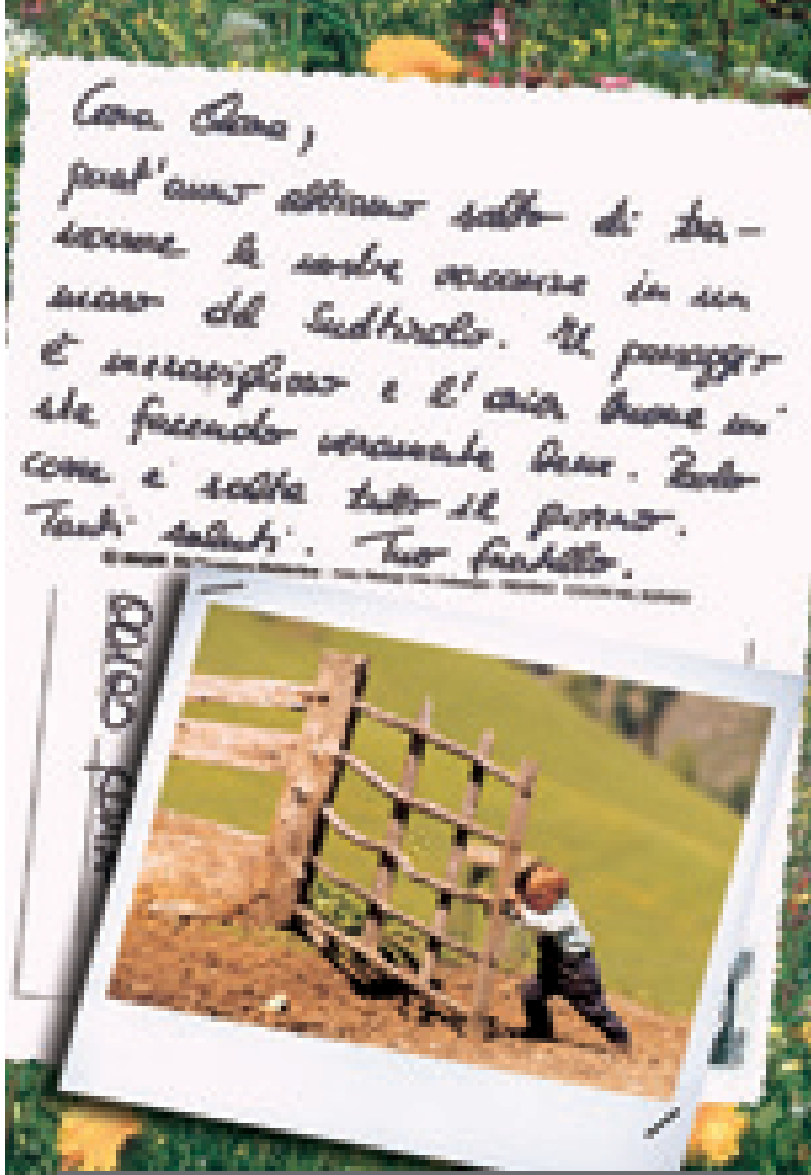 Cara
quest'anno abbiamo scelto di tra-
scorrere le nostre vacanze in un
maso del Sudtirolo. Il paesaggio
è meraviglioso e l'aria buona mi
sta facendo veramente bene. Paolo
corre e salta tutto il giorno.
Tanti saluti. Tuo fratello.